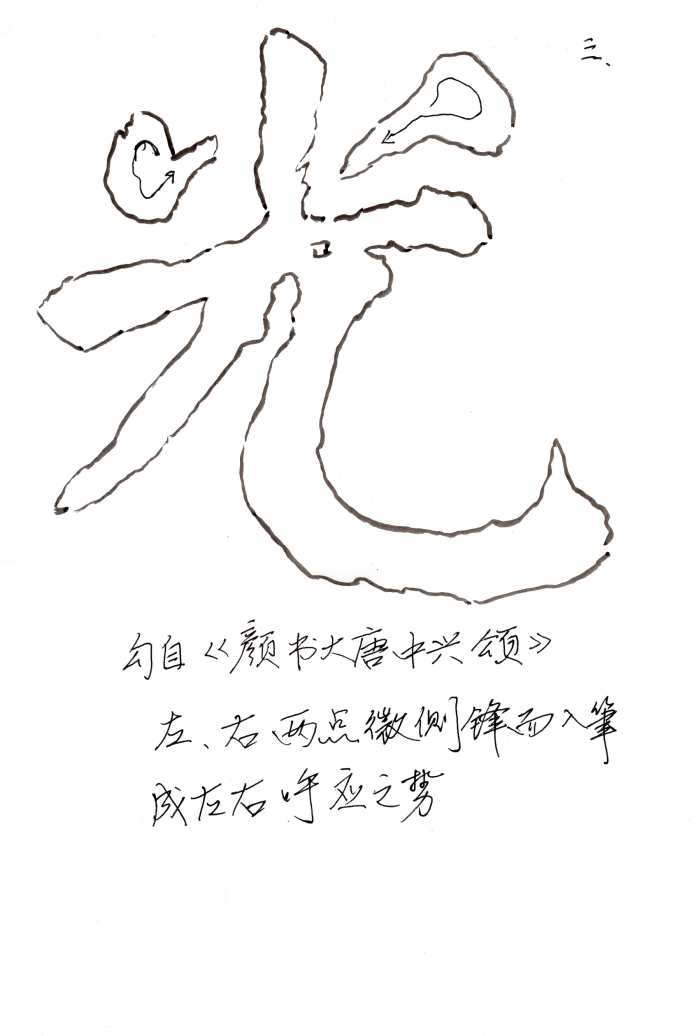 三、
光
勾自《颜书大唐中兴颂》
左、右两点微侧锋而入筆
成左右呼应之势